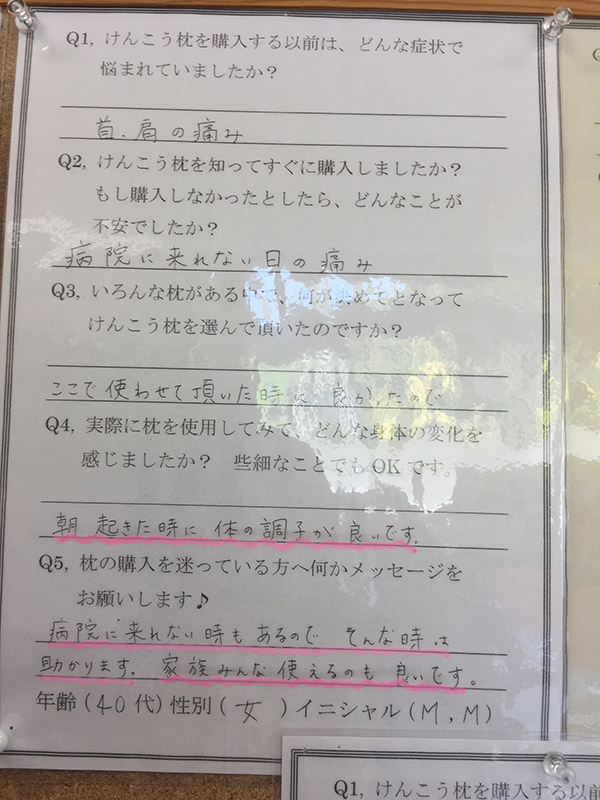 Q1, けんこう枕を購入する以前は、どんな症状で
悩まれていましたか？
首・肩の痛み
Q2, けんこう枕を知ってすぐに購入しましたか？
もし購入しなかったとしたら、どんなことが
不安でしたか？
病院に来れない日の痛み
Q3, いろんな枕がある中で、何が決めてとなって
けんこう枕を選んで頂いたのですか？
ここで使わせて頂いた時に 良かったので
Q4, 実際に枕を使用してみて、どんな身体の変化を
感じましたか？ 些細なことでもOKです。
朝 起きた時に 体の調子が 良いです。
Q5, 枕の購入を迷っている方へ何かメッセージを
お願いします♪
病院に来れない時もあるので そんな時は
助かります。家族みんな使えるのも 良いです。
年齢(40代)性別(女)イニシャル(M,M)
Q1, けんこう枕を購入する以前